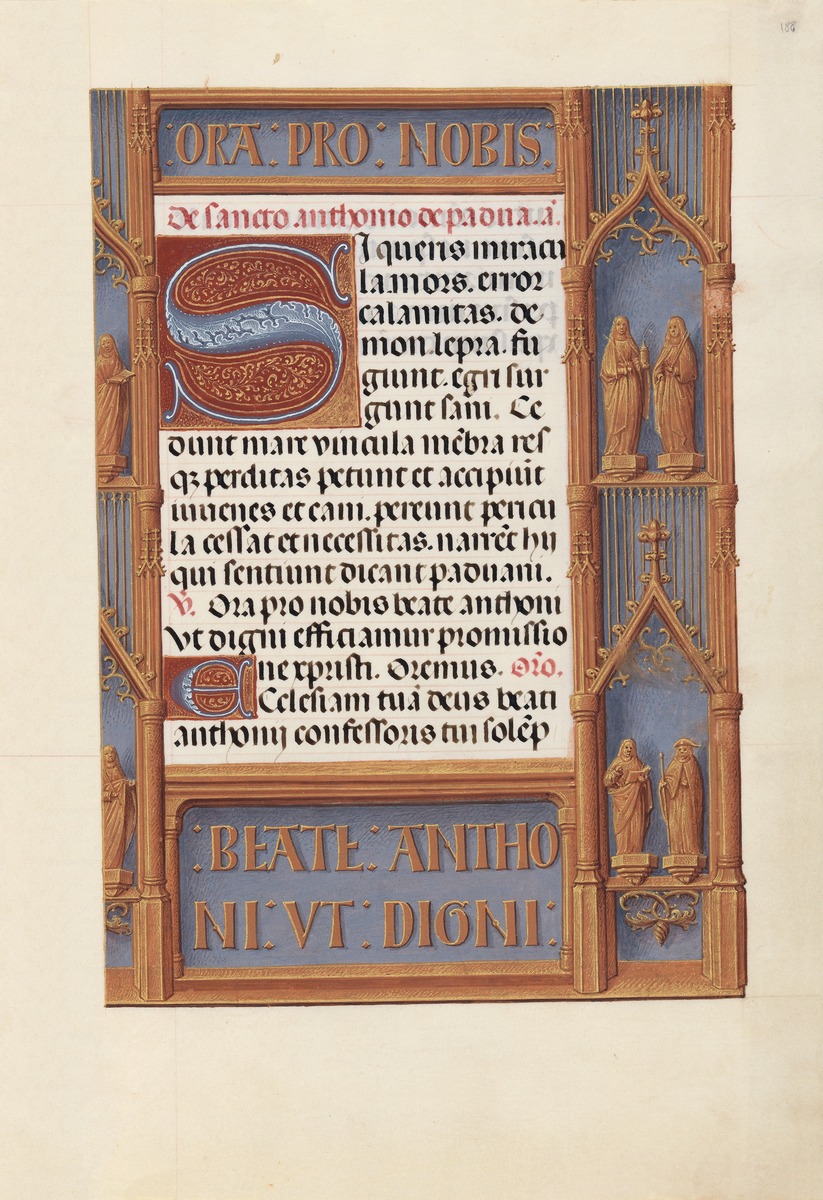 186
:ORA: PRO: NOBIS:
De sancto anthonio de padua. a͞.
SI queris miracu
la mors. error
calamitas. de
mon. lepra. fu
giunt. egri sur
gunt sani. Ce
dunt mare vincula mēbra res
qȝ perditas petunt et accipiūt
iuuenes et cani. pereunt pericu
la cessat et necessitas. narrēt hij
qui sentiunt dicant paduani.
V. Ora pro nobis beate anthoni
Vt digni efficiamur promissio
ne xpristi. Oremus. Oīo.
ECelesiam tuā deus beati
anthonij confessoris tui solēp
:BEATE: ANTHO
NI: VT: DIGNI: